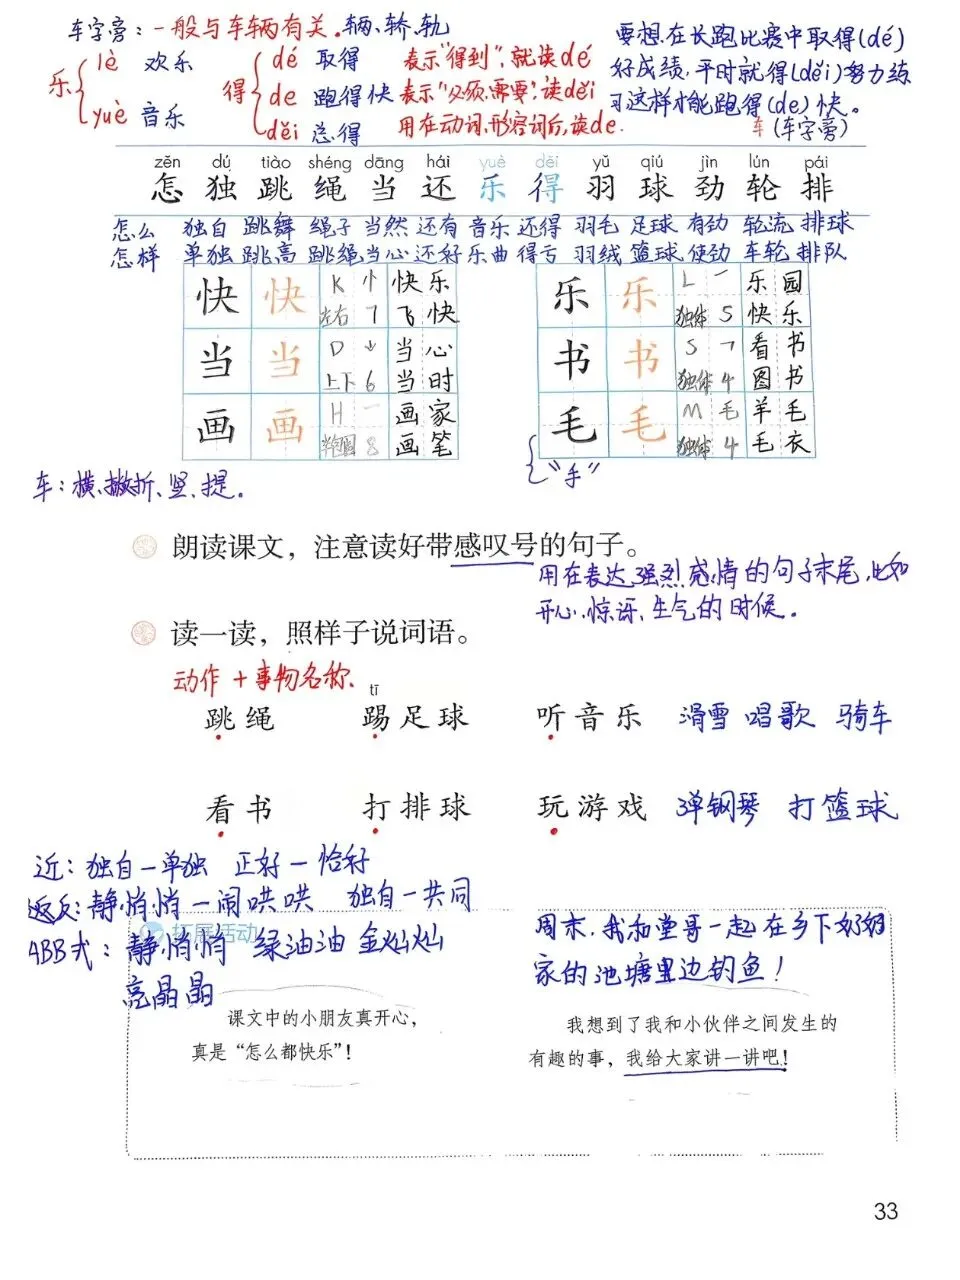 车字旁：一般与车辆有关。辆、轿、轨
乐 lè 欢乐
yuè 音乐
得 dé 取得 表示“得到”，就读dé
de 跑得快 表示“必须、需要”，读děi
děi 总得 用在动词、形容词后，读de.
要想在长跑比赛中取得(dé)
好成绩，平时就得(děi)努力练
习这样才能跑得(de)快。
车(车字旁)
zěn dú tiào shéng dāng hái yuè děi yǔ qiú jìn lún pái
怎 独 跳 绳 当 还 乐 得 羽 球 劲 轮 排
怎么 独自 跳舞 绳子 当然 还有 音乐 还得 羽毛 足球 有劲 轮流 排球
怎样 单独 跳高 跳绳 当心 还好 乐曲 得亏 羽绒 篮球 使劲 车轮 排队
快 快 K 忄 快乐
左右 7 飞快
当 当 D 小 当心
上下 6 当时
画 画 H 一 画家
半包围 8 画笔
乐 乐 L 一 乐园
独体 5 快乐
书 书 S 乛 看书
独体 4 图书
毛 毛 M 毛 羊毛
独体 4 毛衣
“手”
车：横、撇折、竖、提。
朗读课文，注意读好带感叹号的句子。
用在表达强烈感情的句子末尾，比如
开心、惊讶、生气的时候。
读一读，照样子说词语。
动作 + 事物名称
tī
跳绳 踢足球 听音乐 滑雪 唱歌 骑车
看书 打排球 玩游戏 弹钢琴 打篮球
近：独自—单独 正好—恰好
反：静悄悄—闹哄哄 独自—共同
ABB式：静悄悄 绿油油 金灿灿
亮晶晶
拓展活动
周末，我和堂哥一起在乡下奶奶
家的池塘里边钓鱼！
课文中的小朋友真开心，
真是“怎么都快乐”！
我想到了我和小伙伴之间发生的
有趣的事，我给大家讲一讲吧！
33